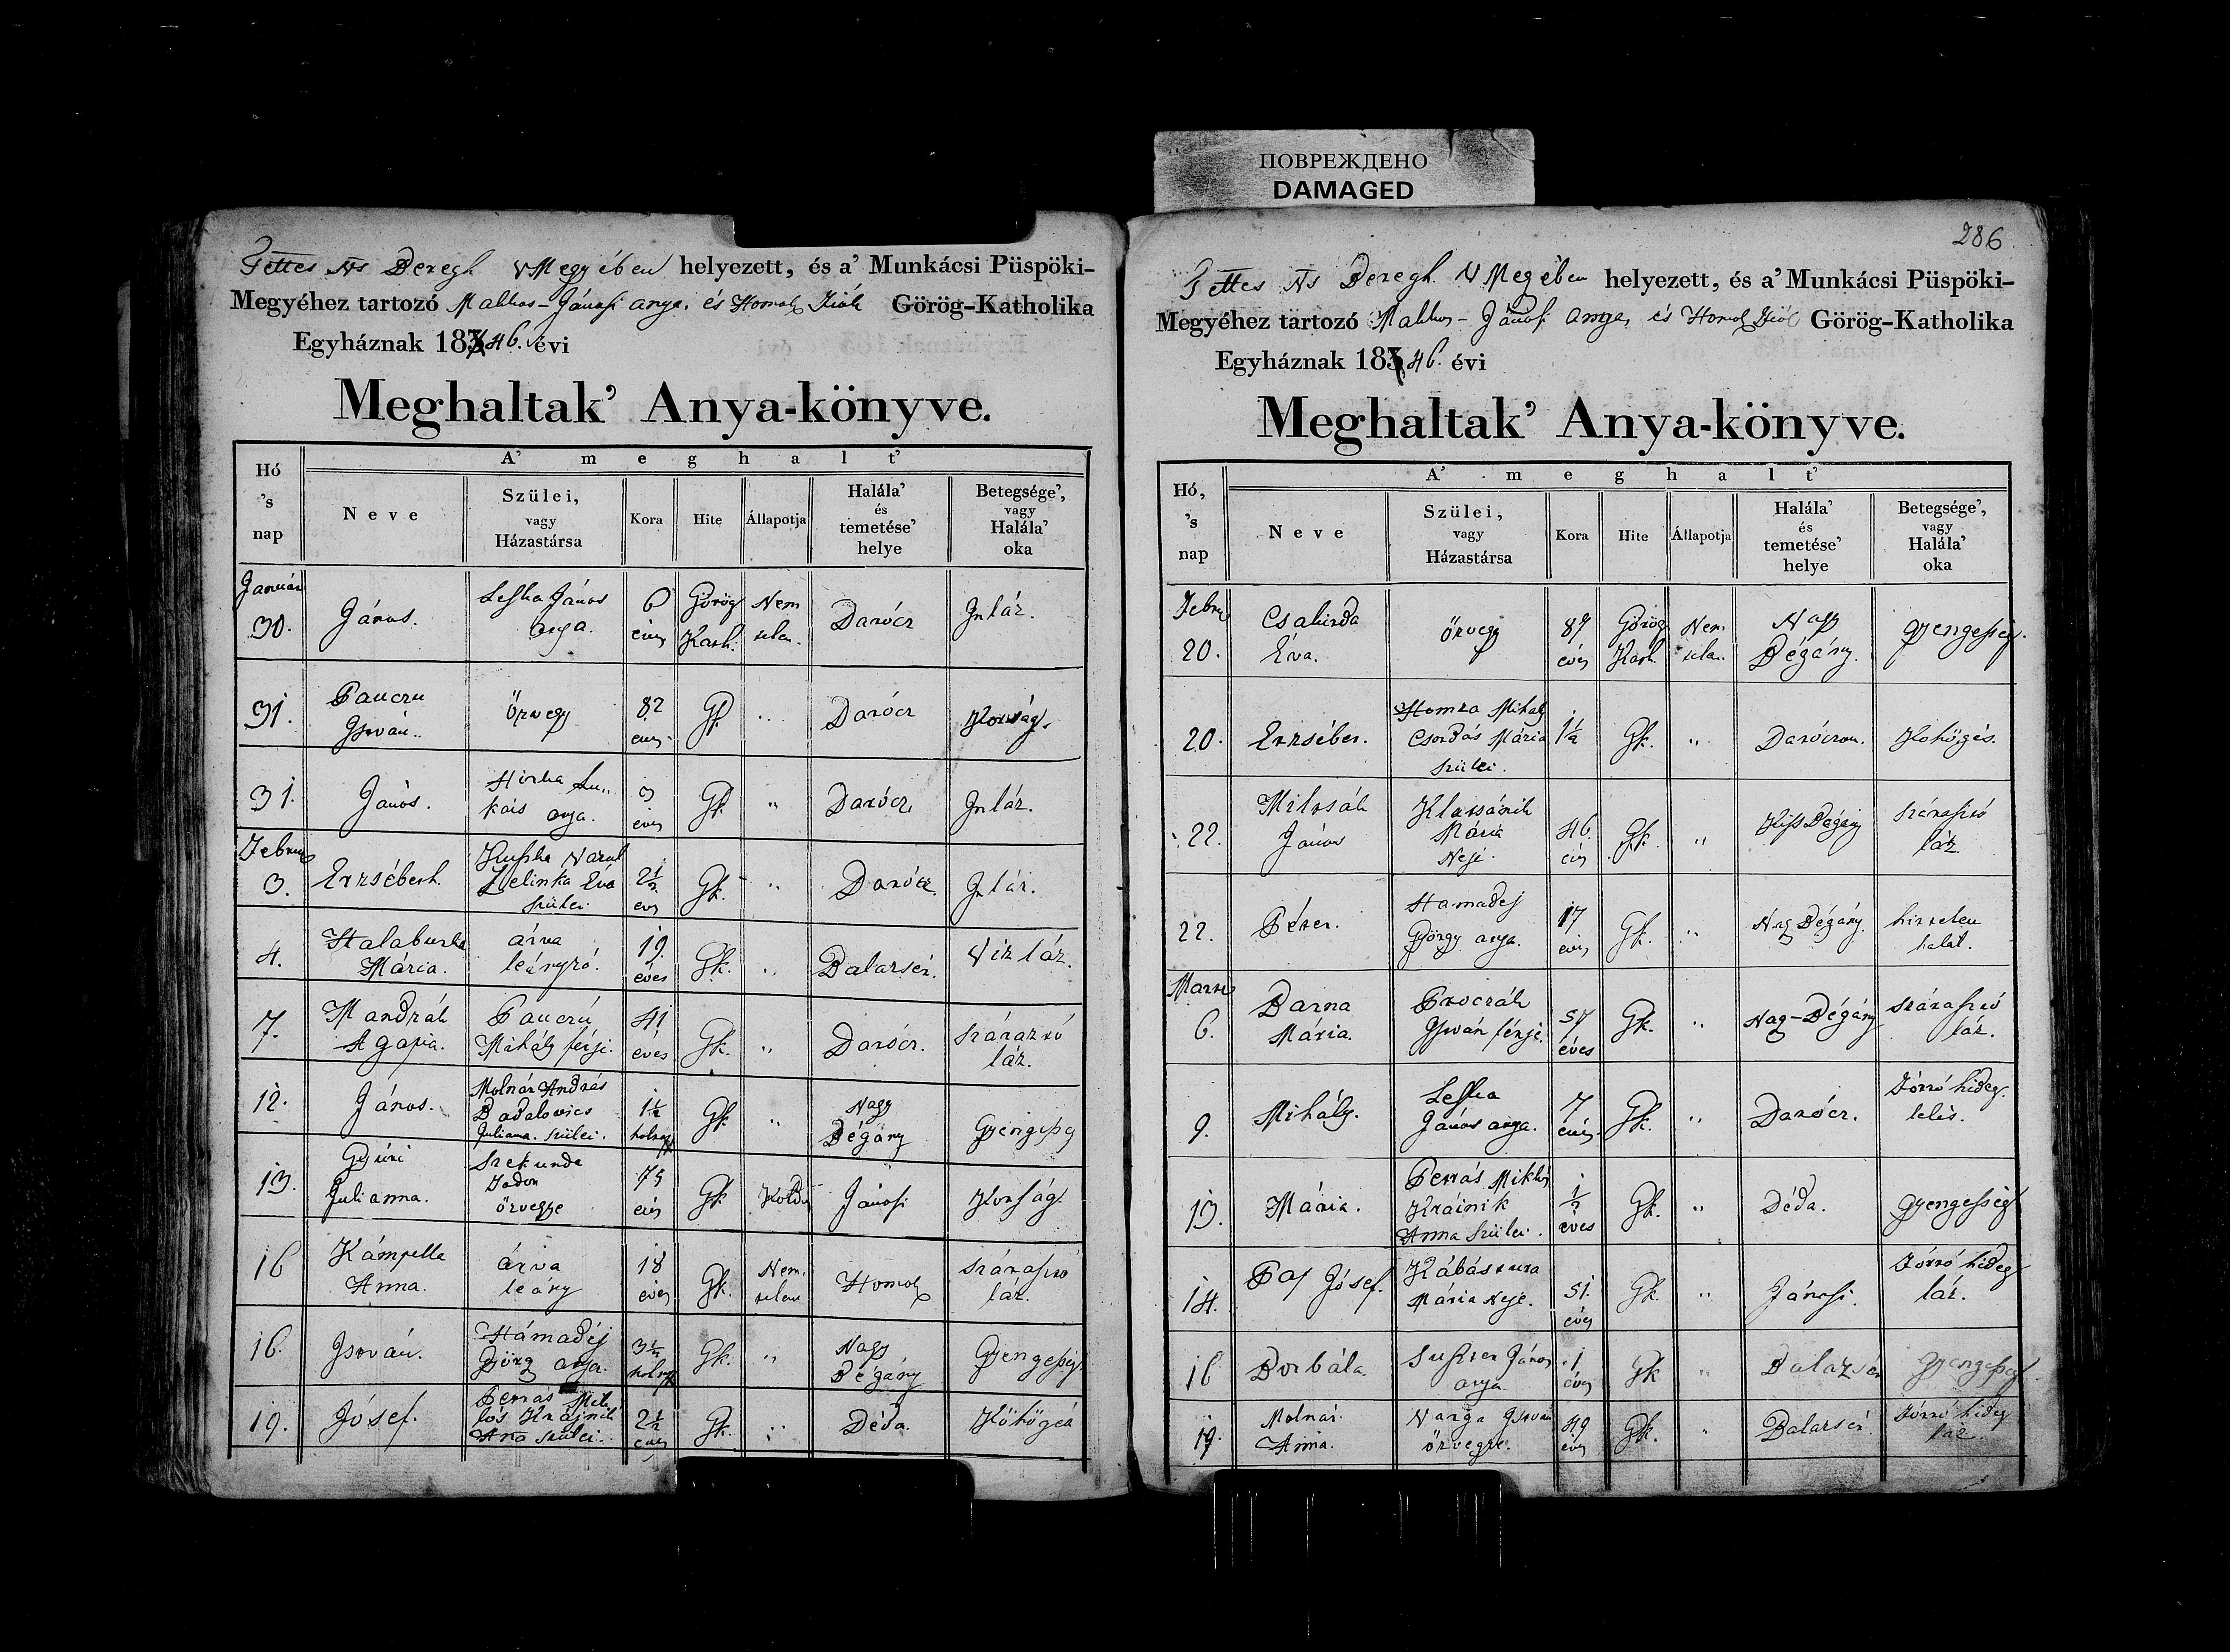 ПОВРЕЖДЕНО
DAMAGED
Tettes Ns Beregh VMegyében helyezett, és a' Munkácsi Püspöki-
Megyéhez tartozó Makkos-Jánosi anya, és Homok fiók Görög-Katholika
Egyháznak 1846. évi
Meghaltak' Anya-könyve.
A' meghalt'
Hó 's nap
Neve
Szülei, vagy Házastársa
Kora
Hite
Állapotja
Halála' és temetése' helye
Betegsége', vagy Halála' oka
Január 30. János. Leska János anya. 6 éves Görög Kath. Nem telen. Darócz In láz.
31. István. özvegy 82 éves Gk. " Darócz Korság.
31. János. Hirka Lu,, káts anya. 3 éves Gk " Darócz In láz.
Februar 3. Erzsébeth. Zelinka Éva szülei 2½ éves Gk. " Darócz In láz.
4. Mária. árva leányzó. 19. éves Gk. " Balazsér. Viz láz.
7. Mandrák Agapia. Mihály férje. 41 éves Gk. " Darócz. Szárazzó láz.
12. János. Molnár András Badalovics Juliana. szülei. 1½ holnap Gk. " Nagy Bégány Gyengeség
13. Gyüri Julianna. Szekunda özvegye 75 éves Gk Koldus Jánosi Korság.
16 Kámpella Anna. árva leány 18 éves Gk. Nem. telen Homok szárasztó láz.
16. István. Hámadéj Györg anya. 3½ holnap Gk. " Nagy Bégány Gyengeség.
19. Jósef. Petrás Mik lós Krajnik Anna szülei. 2½ éves Gk. " Déda. Köhögés
286
Tettes Ns Beregh VMegyében helyezett, és a' Munkácsi Püspöki-
Megyéhez tartozó Makkos-Jánosi anya, és Homok fiók Görög-Katholika
Egyháznak 1846. évi
Meghaltak' Anya-könyve.
A' meghalt'
Hó, 's nap
Neve
Szülei, vagy Házastársa
Kora
Hite
Állapotja
Halála' és temetése' helye
Betegsége', vagy Halála' oka
Febru 20. Éva. özvegy éves Görög Kath. Nem telen. Nagy Bégány. gyengeség.
20. Erzsébet. Homza Mihaly Csordás Mária szülei. 1½ Gk. " Daróczon. Kohögés.
22. János Mária Neje. 46. éves Gk. " Kiss Bégány szárasztó láz.
22. Péter. Hamadej György anya. 17 éves Gk. " Nagy Bégány. hirtelen halál.
Marti 6. Barna Mária. Proczák István férje. 57 éves Gk. " Nagy-Bégány szárasztó láz.
9. Mihály. Leska János anya. 7 éves Gk. " Darócz. forró hideg. lelés.
13. Mária. Petrás Miklós Krainik Anna szülei. ½ éves Gk. " Déda. gyengeség
14. Pap Jósef. Mária Neje. 51. éves Gk. " Jánosi. forró hideg láz.
16 Borbála János anya. 1 éves Gk " Balazsér Gyengeség.
19. Molnár Anna. Varga István özvegye. 49 éves Gk. " Balazsér. forró hideg láz.